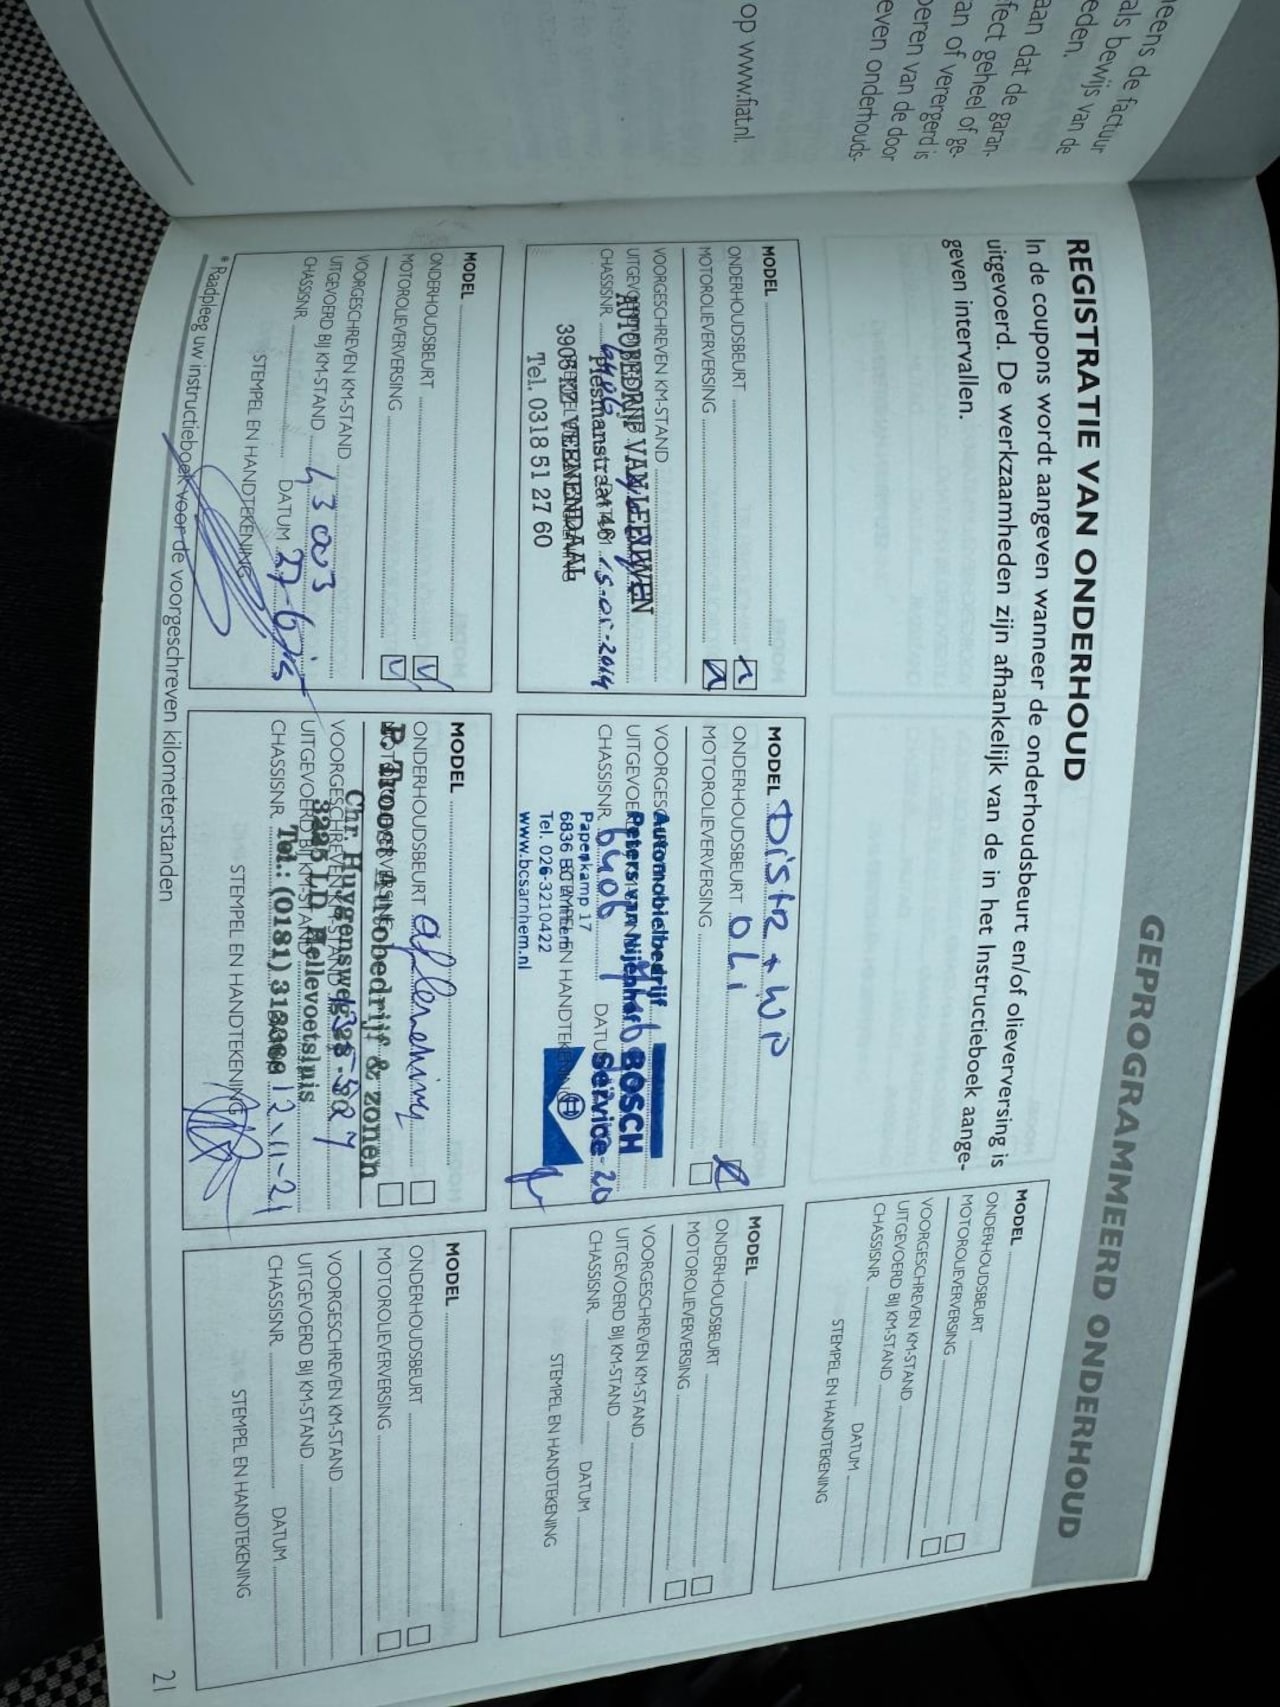 eens de factuur
als bewijs van
eden.
van de
aan dat de garan-
fect geheel of ge-
an of verergerd is
eren van de door
even onderhouds-
op www.fiat.nl.
GEPROGRAMMEERD ONDERHOUD
REGISTRATIE VAN ONDERHOUD
In de coupons wordt aangegeven wanneer de onderhoudsbeurt en/of olieverversing is
uitgevoerd. De werkzaamheden zijn afhankelijk van de in het Instructieboek aange-
geven intervallen.
MODEL
ONDERHOUDSBEURT
MOTOROLIEVERVERSING
VOORGESCHREVEN KM-STAND
UITGEVOERD BIJ KM-STAND
CHASSISNR.
DATUM
STEMPEL EN HANDTEKENING
MODEL
ONDERHOUDSBEURT
MOTOROLIEVERVERSING
VOORGESCHREVEN KM-STAND
CHASSISNR. 6406
15-01-2014
AUTOBEDRIJF VAN LEEUWEN
Plesmanstraat 46
3905 KZ VEENENDAAL
Tel. 0318 51 27 60
MODEL Distr + WP
ONDERHOUDSBEURT
MOTOROLIEVERVERSING
CHASSISNR. 6406
Automobielbedrijf
Peters van Nijenhof
Papenkamp 17
6836 BD Arnhem
Tel. 026-3210422
www.bcsarnhem.nl
BOSCH
Service
STEMPEL EN HANDTEKENING
MODEL
ONDERHOUDSBEURT
MOTOROLIEVERVERSING
VOORGESCHREVEN KM-STAND
UITGEVOERD BIJ KM-STAND
CHASSISNR.
DATUM
STEMPEL EN HANDTEKENING
MODEL
ONDERHOUDSBEURT
MOTOROLIEVERVERSING
VOORGESCHREVEN KM-STAND
UITGEVOERD BIJ KM-STAND 43003
CHASSISNR. DATUM
STEMPEL EN HANDTEKENING
MODEL
ONDERHOUDSBEURT aflevering
P. Troost Autobedrijf & zonen
Chr. Huygensweg
3225 LD Hellevoetsluis
VOORGESCHREVEN KM-STAND
UITGEVOERD BIJ KM-STAND
CHASSISNR. 12-11-21
Tel.: (0181)
STEMPEL EN HANDTEKENING
MODEL
ONDERHOUDSBEURT
MOTOROLIEVERVERSING
VOORGESCHREVEN KM-STAND
UITGEVOERD BIJ KM-STAND
CHASSISNR. DATUM
STEMPEL EN HANDTEKENING
* Raadpleeg uw instructieboek voor de voorgeschreven kilometerstanden
21